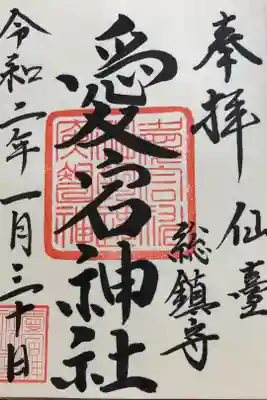 奉拝
仙臺
総鎮守
愛宕神社
令和二年一月三十日